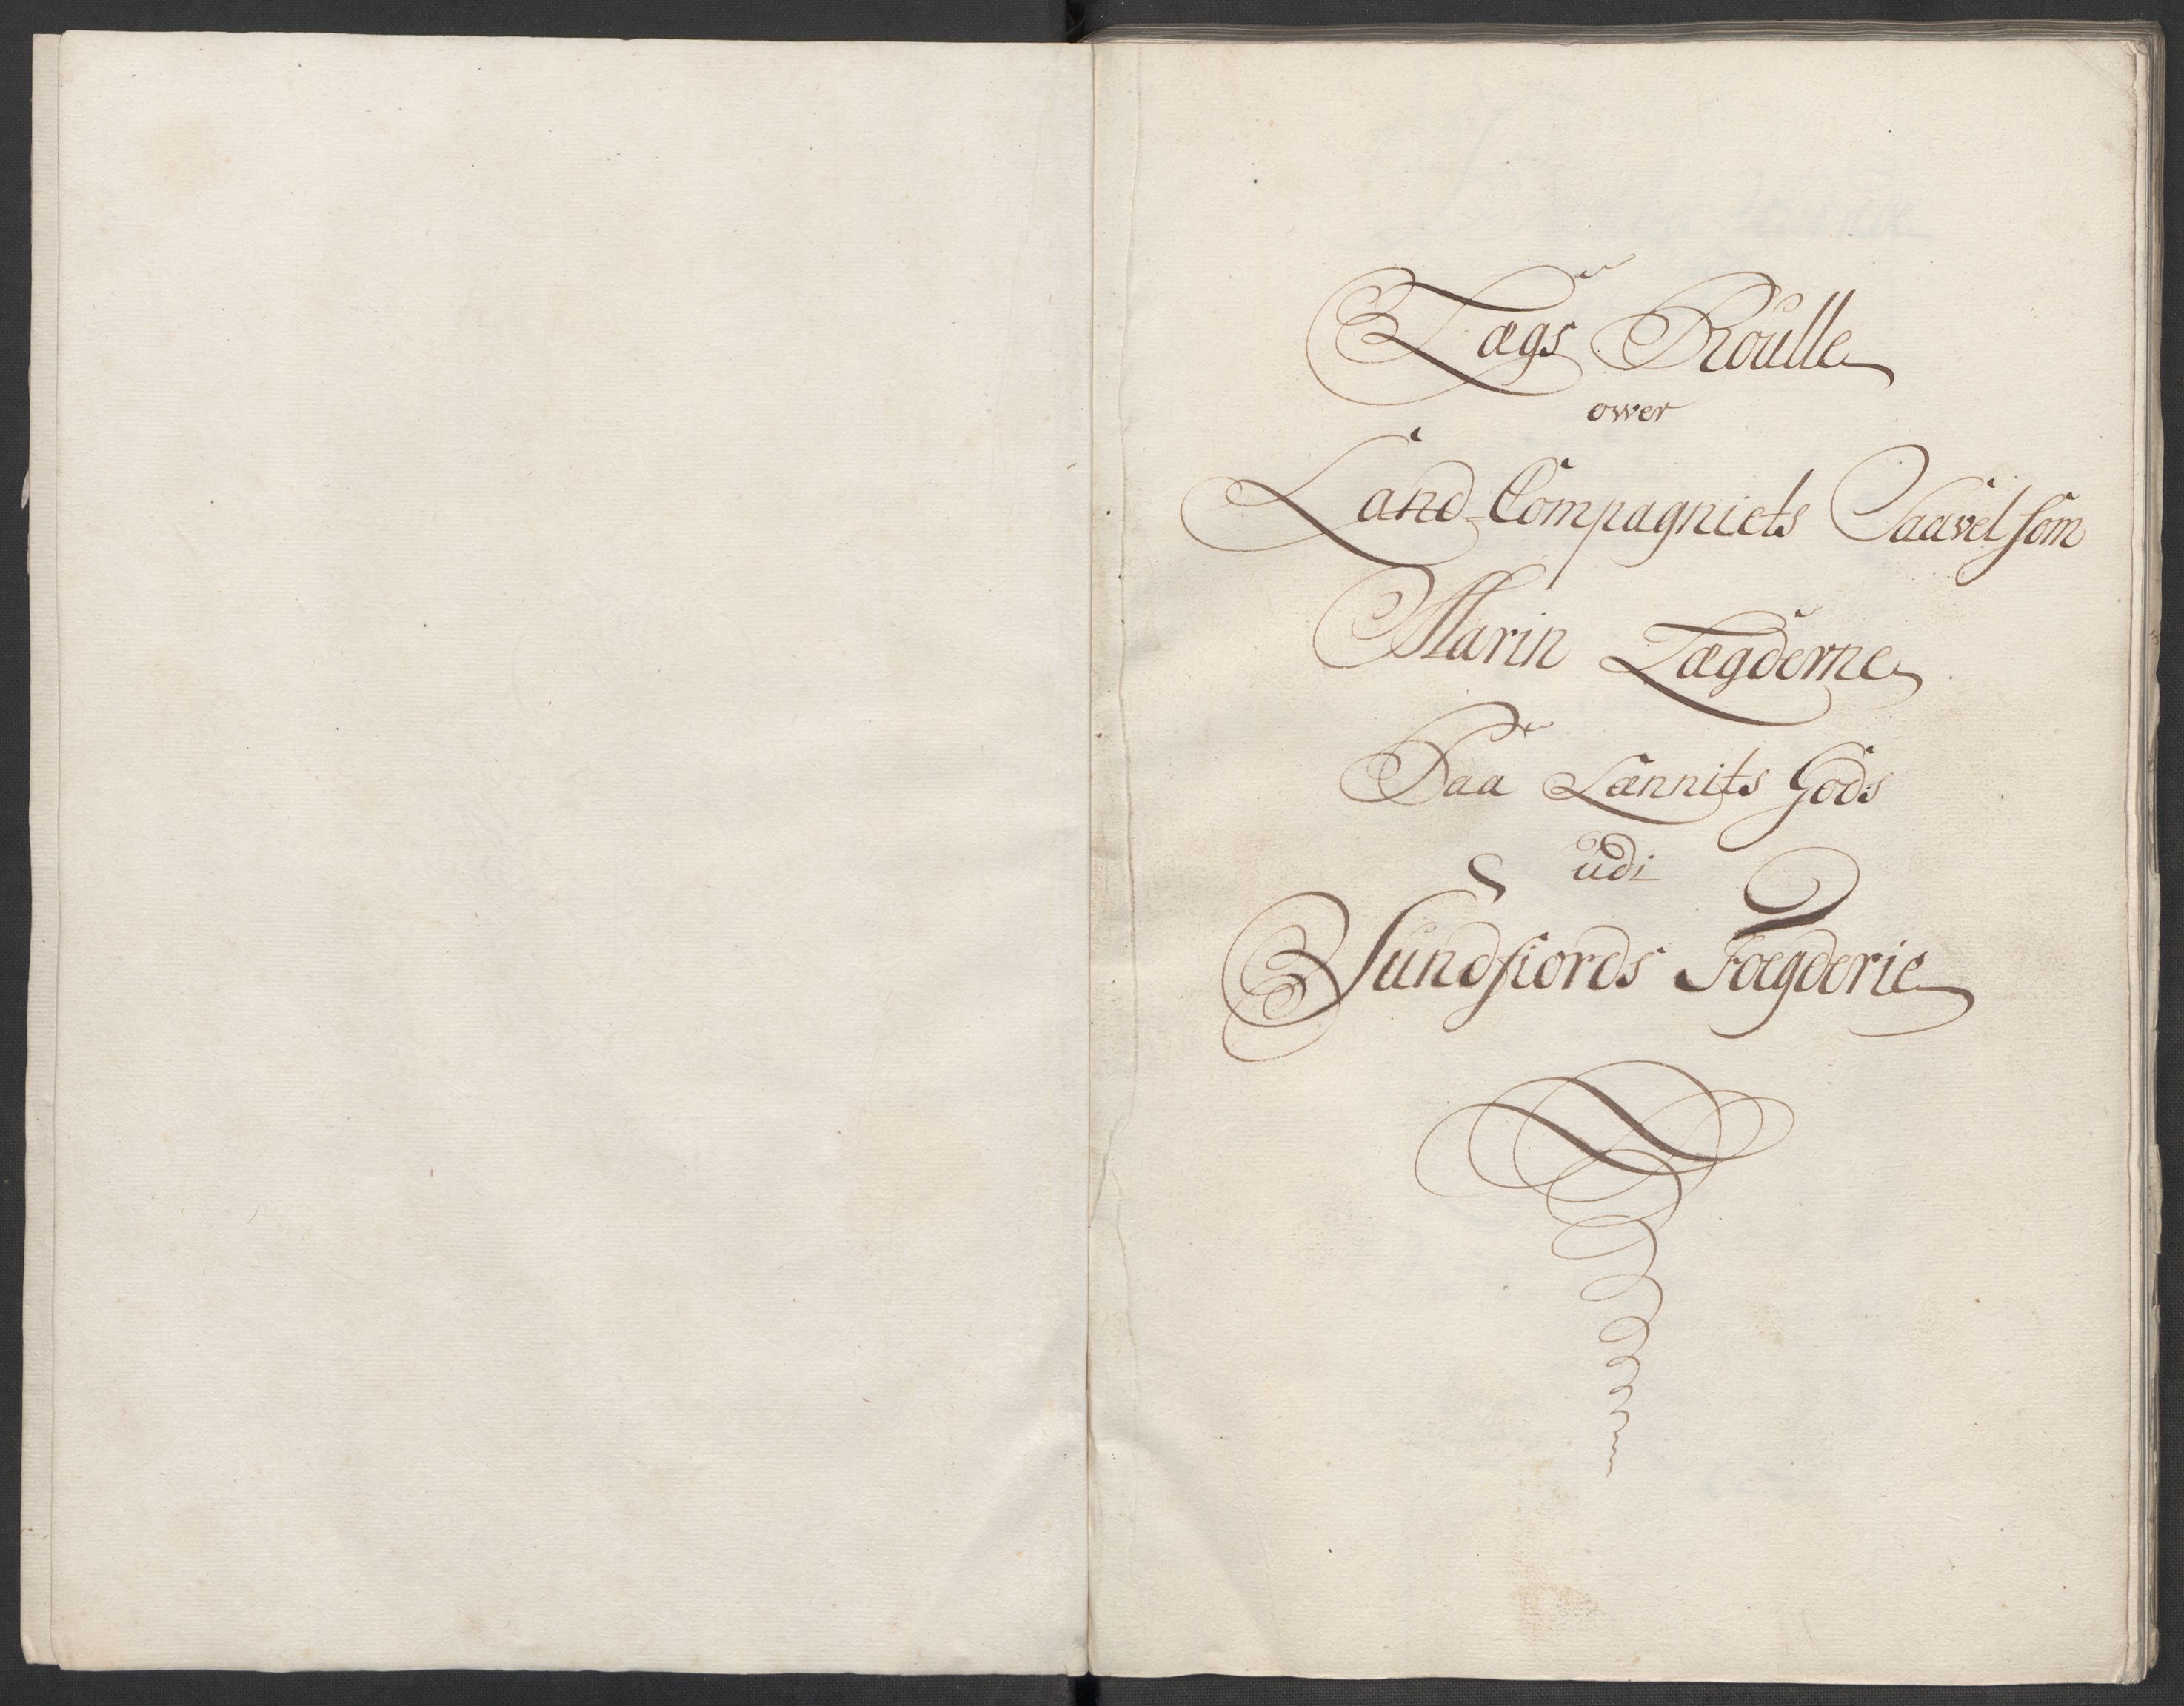 Lægs Roulle
ower
Land-Compagniets Saavelsom
Marin Lægderne
Paa Lænnits Gods
udi
Sundfiords Foegderie